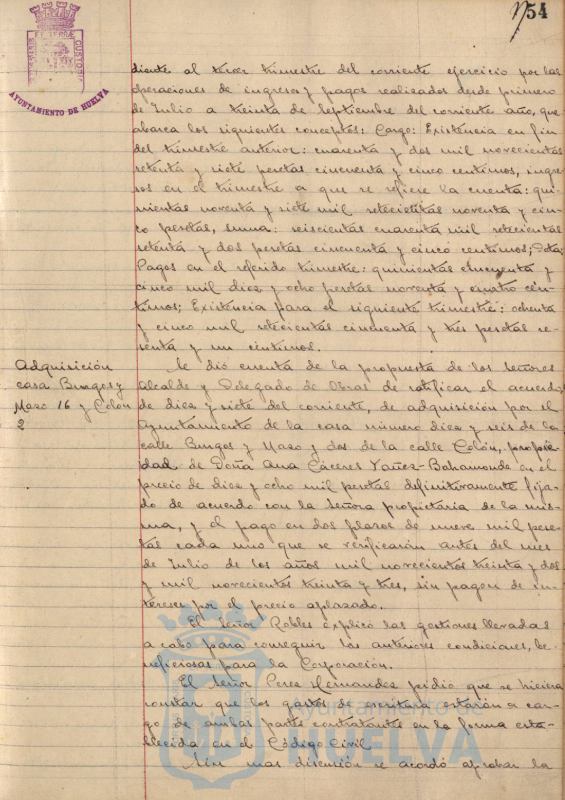 54
AYUNTAMIENTO DE HUELVA
diente al tercer trimestre del corriente ejercicio por las
operaciones de ingresos y pagos realizados desde primero
de Julio a treinta de Septiembre del corriente año, que
abarca los siguientes conceptos: Cargo: Existencia en fin
del trimestre anterior: cuarenta y dos mil novecientas
setenta y siete pesetas cincuenta y cinco centimos, ingre-
sos en el trimestre a que se refiere la cuenta: qui-
nientas noventa y siete mil setecientas noventa y cin-
co pesetas, suma: seiscientas cuarenta mil setecientas
setenta y dos pesetas cincuenta y cinco centimos; Data:
Pagos en el referido trimestre: quinientas cincuenta y
cinco mil diez y ocho pesetas noventa y cuatro cén-
timos; Existencia para el siguiente trimestre: ochenta
y cinco mil setecientas cincuenta y tres pesetas se-
senta y un centimos.
Adquisición
casa Burgos y
Mazo 16 y Colon
2
Se dió cuenta de la propuesta de los Señores
Alcalde y Delegado de Obras de ratificar el acuerdo
de diez y siete del corriente, de adquisición por el
Ayuntamiento de la casa número diez y seis de la
calle Burgos y Mazo y dos de la calle Colón, propie-
dad de Doña Ana Cáceres Yañez-Bahamonde en el
precio de diez y ocho mil pesetas definitivamente fija-
do de acuerdo con la Señora propietaria de la mis-
ma, y el pago en dos plazos de nueve mil pese-
tas cada uno que se verificarán antes del mes
de Julio de los años mil novecientos treinta y dos
y mil novecientos treinta y tres, sin pagar de in-
tereses por el precio aplazado.
El Señor Robles explicó las gestiones llevadas
a cabo para conseguir las anteriores condiciones, be-
neficiosas para la Corporación.
El Señor Perez Hernandez pidió que se hiciera
constar que los gastos de escritura estarán a car-
go de ambas partes contratantes en la forma esta-
blecida en el Código Civil
Sin mas discusión se acordó aprobar la
Ayuntamiento de
HUELVA